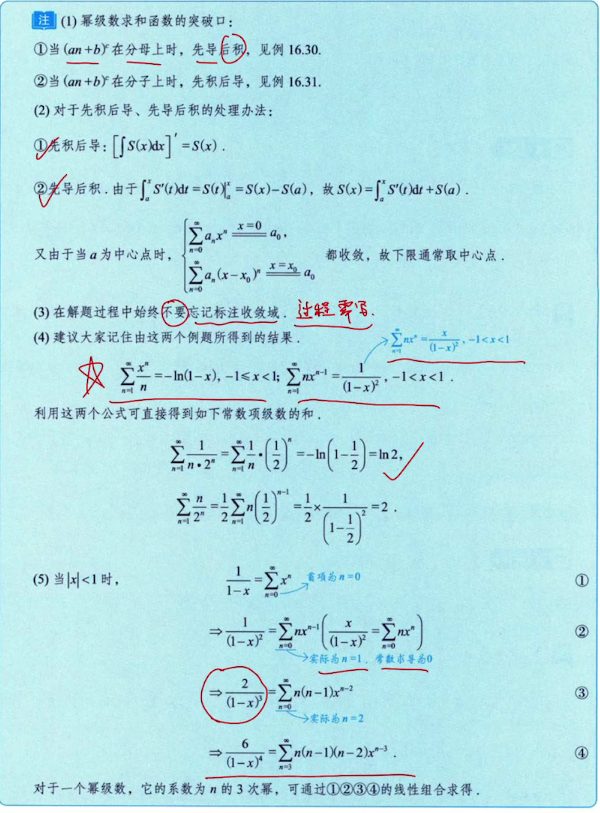 注 (1) 幂级数求和函数的突破口：
①当 (an+b)ᶜ 在分母上时，先导后积，见例 16.30.
②当 (an+b)ᶜ 在分子上时，先积后导，见例 16.31.
(2) 对于先积后导、先导后积的处理办法：
①先积后导：[∫S(x)dx]′=S(x).
②先导后积. 由于∫ₐˣ S′(t)dt=S(t)|ₐˣ=S(x)−S(a)，故 S(x)=∫ₐˣ S′(t)dt+S(a).
又由于当 a 为中心点时，{ ∑_{n=0}^{∞} aₙxⁿ ═(x=0)═ a₀,
∑_{n=0}^{∞} aₙ(x−x₀)ⁿ ═(x=x₀)═ a₀ 都收敛，故下限通常取中心点.
(3) 在解题过程中始终不要忘记标注收敛域. 过程要写.
(4) 建议大家记住由这两个例题所得到的结果. ∑_{n=1}^{∞} nxⁿ=x/(1−x)², −1<x<1
☆ ∑_{n=1}^{∞} xⁿ/n=−ln(1−x), −1≤x<1; ∑_{n=1}^{∞} nxⁿ⁻¹=1/(1−x)², −1<x<1.
利用这两个公式可直接得到如下常数项级数的和.
∑_{n=1}^{∞} 1/(n·2ⁿ)=∑_{n=1}^{∞} 1/n·(1/2)ⁿ=−ln(1−1/2)=ln2,
∑_{n=1}^{∞} n/2ⁿ=1/2 ∑_{n=1}^{∞} n(1/2)ⁿ⁻¹=1/2×1/(1−1/2)²=2.
(5) 当|x|<1时， 1/(1−x)=∑_{n=0}^{∞} xⁿ 首项为n=0 ①
⇒1/(1−x)²=∑_{n=0}^{∞} nxⁿ⁻¹(x/(1−x)²=∑_{n=0}^{∞} nxⁿ) ②
实际为n=1，常数求导为0
⇒2/(1−x)³=∑_{n=0}^{∞} n(n−1)xⁿ⁻² ③
实际为n=2
⇒6/(1−x)⁴=∑_{n=3}^{∞} n(n−1)(n−2)xⁿ⁻³. ④
对于一个幂级数，它的系数为 n 的 3 次幂，可通过①②③④的线性组合求得.